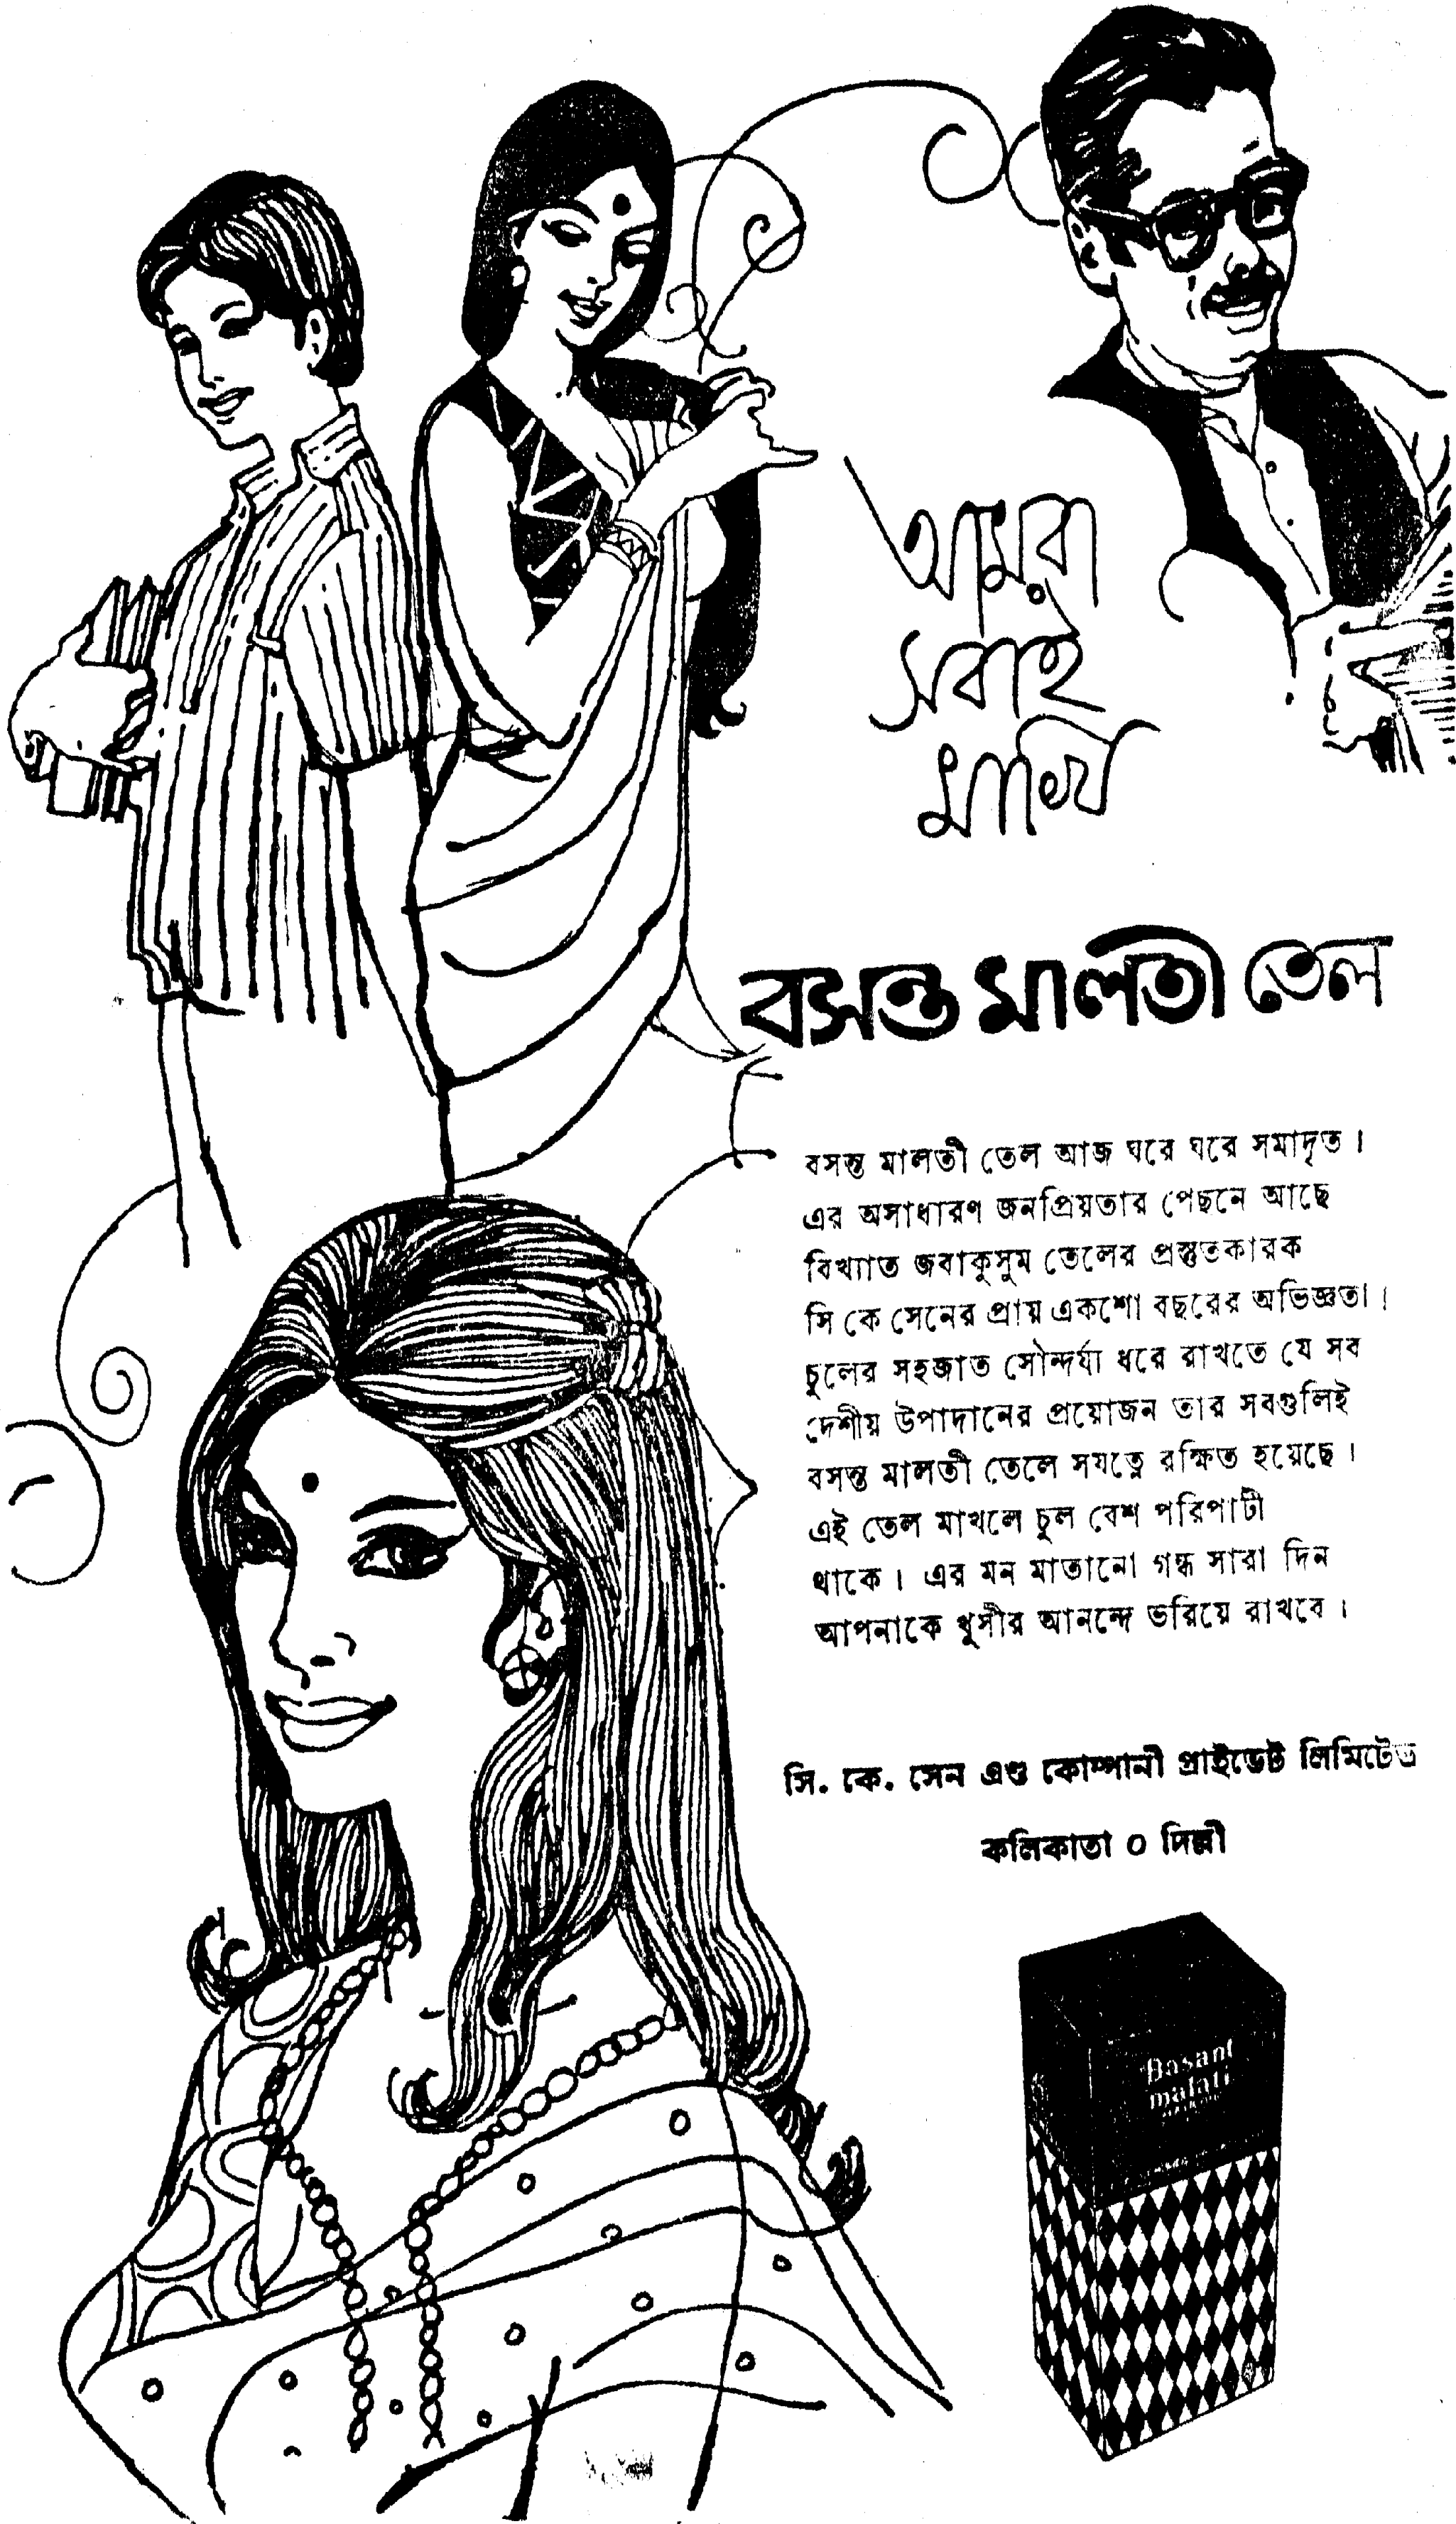 আমরা
সবাই
মাখি
বসন্ত মালতী তেল
বসন্ত মালতী তেল আজ ঘরে ঘরে সমাদৃত।
এর অসাধারণ জনপ্রিয়তার পেছনে আছে
বিখ্যাত জবাকুসুম তেলের প্রস্তুতকারক
সি কে সেনের প্রায় একশো বছরের অভিজ্ঞতা।
চুলের সহজাত সৌন্দর্য্য ধরে রাখতে যে সব
দেশীয় উপাদানের প্রয়োজন তার সবগুলিই
বসন্ত মালতী তেলে সযত্নে রক্ষিত হয়েছে।
এই তেল মাখলে চুল বেশ পরিপাটী
থাকে। এর মন মাতানো গন্ধ সারা দিন
আপনাকে খুসীর আনন্দে ভরিয়ে রাখবে।
সি. কে. সেন এণ্ড কোম্পানী প্রাইভেট লিমিটেড
কলিকাতা ০ দিল্লী
Basant
malati